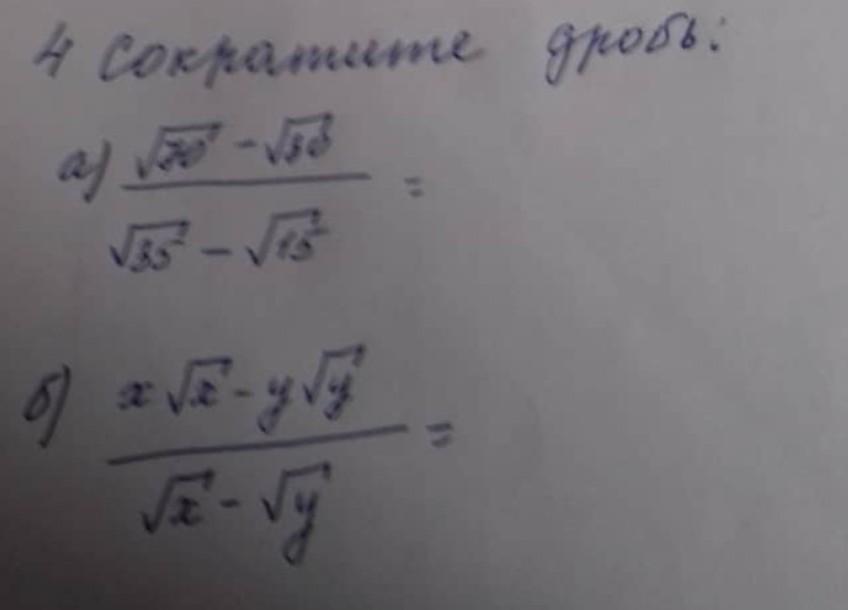 4 Сократите дробь:
а) (√70 - √30) / (√35 - √15) =
б) (x√x - y√y) / (√x - √y) =